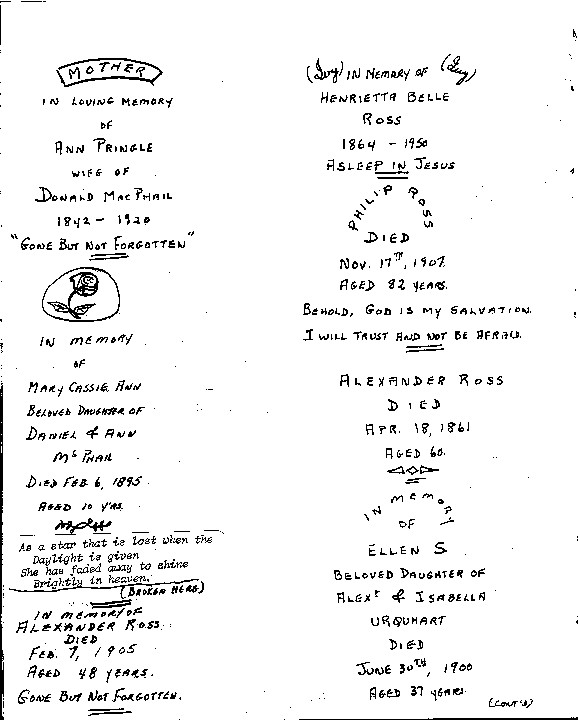 MOTHER
IN LOVING MEMORY
OF
ANN PRINGLE
WIFE OF
DONALD MACPHAIL
1842 - 1920
"GONE BUT NOT FORGOTTEN"
IN MEMORY
OF
MARY CASSIE ANN
BELOVED DAUGHTER OF
DANIEL & ANN
McPHAIL
DIED FEB 6, 1895
AGED 10 YRS.
As a star that is lost when the
Daylight is given
She has faded away to shine
Brightly in heaven.
(BROKEN HERE)
IN MEMORY OF
ALEXANDER ROSS
DIED
FEB. 7, 1905
AGED 48 YEARS.
GONE BUT NOT FORGOTTEN.
(Ivy) IN MEMORY OF (Ivy)
HENRIETTA BELLE
ROSS
1864 - 1950
ASLEEP IN JESUS
PHILIP ROSS
DIED
NOV. 17TH, 1907.
AGED 82 YEARS.
BEHOLD, GOD IS MY SALVATION.
I WILL TRUST AND NOT BE AFRAID.
ALEXANDER ROSS
DIED
APR. 18, 1861
AGED 60.
IN MEMORY
OF
ELLEN S.
BELOVED DAUGHTER OF
ALEXR & ISABELLA
URQUHART
DIED
JUNE 30TH, 1900
AGED 37 YEARS.
(CONT'D)